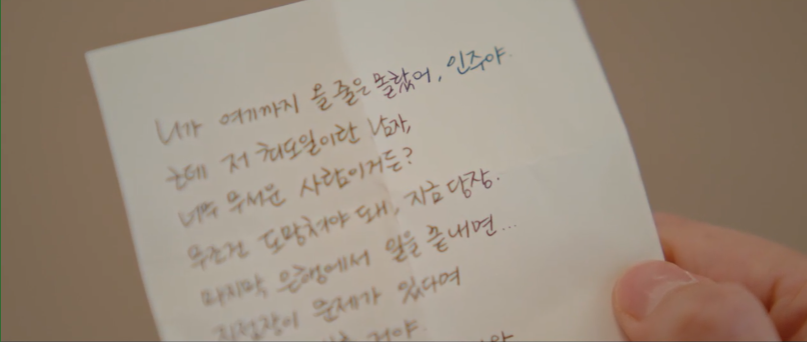 니가 여기까지 올 줄은 몰랐어, 인주야
근데 저 최도일이란 남자,
너무 무서운 사람이거든?
무조건 도망쳐야 돼, 지금 당장.
마지막 은행에서 일을 끝내면...
지점장이 문제가 있다며
거야.